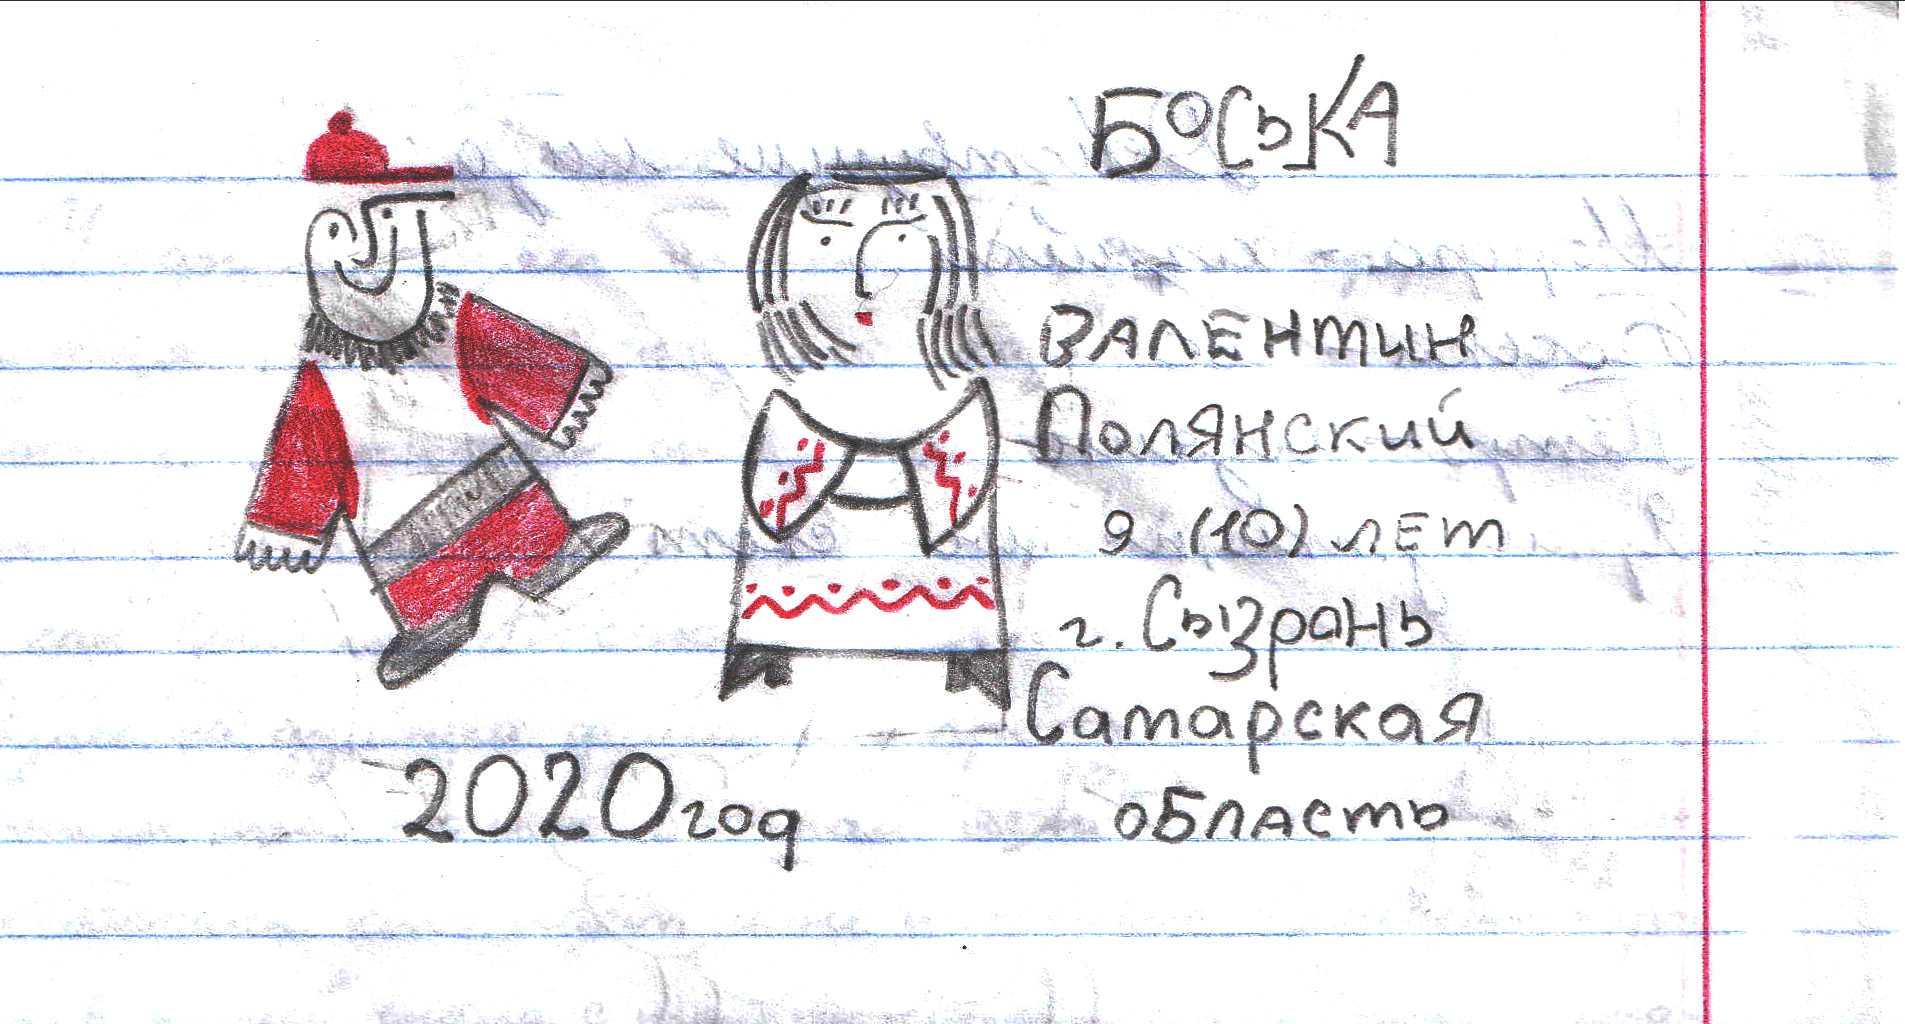 БОСЬКА
ВАЛЕНТИН
Полянский
9 (10) ЛЕТ
г. Сызрань
Самарская
область
2020 год